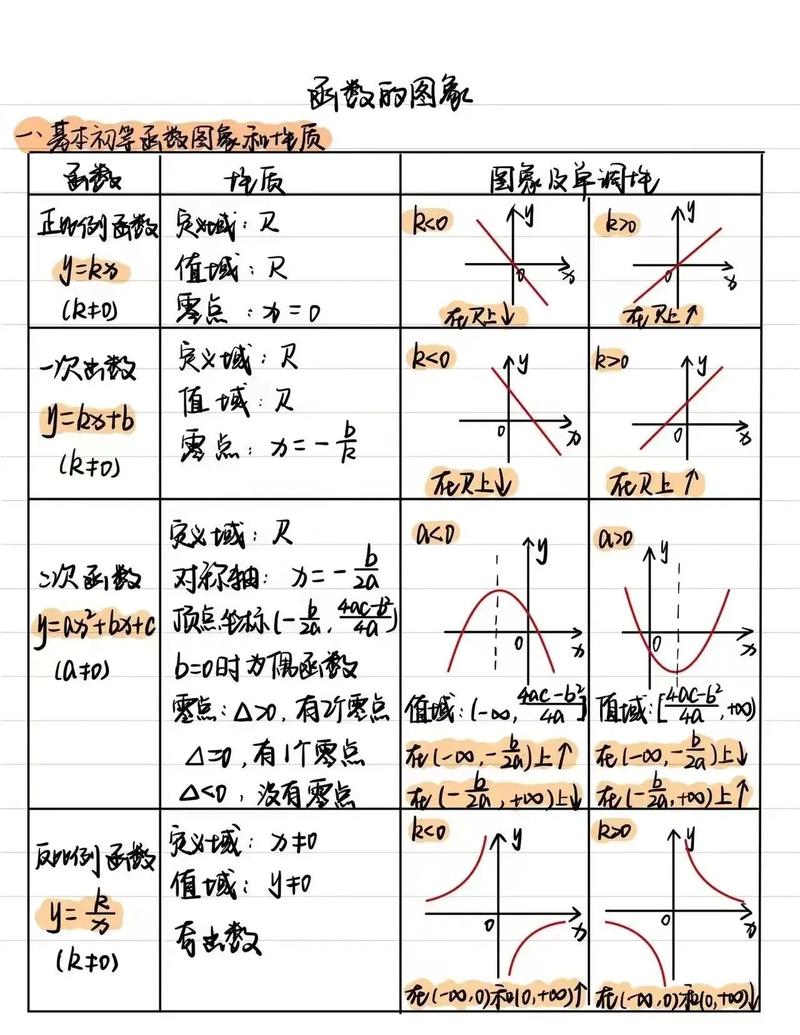 函数的图象
一、基本初等函数图象和性质
函数 性质 图象及单调性
正比例函数
y=kx
(k≠0)
定义域：R
值域：R
零点：x=0
k<0
y
0
x
在R上↓
k>0
y
0
x
在R上↑
一次函数
y=kx+b
(k≠0)
定义域：R
值域：R
零点：x=-b/k
k<0
y
0
x
在R上↓
k>0
y
0
x
在R上↑
二次函数
y=ax²+bx+c
(a≠0)
定义域：R
对称轴：x=-b/2a
顶点坐标(-b/2a, 4ac-b²/4a)
b=0时为偶函数
零点：Δ>0，有2个零点
Δ=0，有1个零点
Δ<0，没有零点
a<0
y
0
x
值域：(-∞, 4ac-b²/4a]
在(-∞,-b/2a)上↑
在(-b/2a,+∞)上↓
a>0
y
0
x
值域：[4ac-b²/4a,+∞)
在(-∞,-b/2a)上↓
在(-b/2a,+∞)上↑
反比例函数
y=k/x
(k≠0)
定义域：x≠0
值域：y≠0
奇函数
k<0
y
0
x
在(-∞,0)和(0,+∞)↑
k>0
y
0
x
在(-∞,0)和(0,+∞)↓